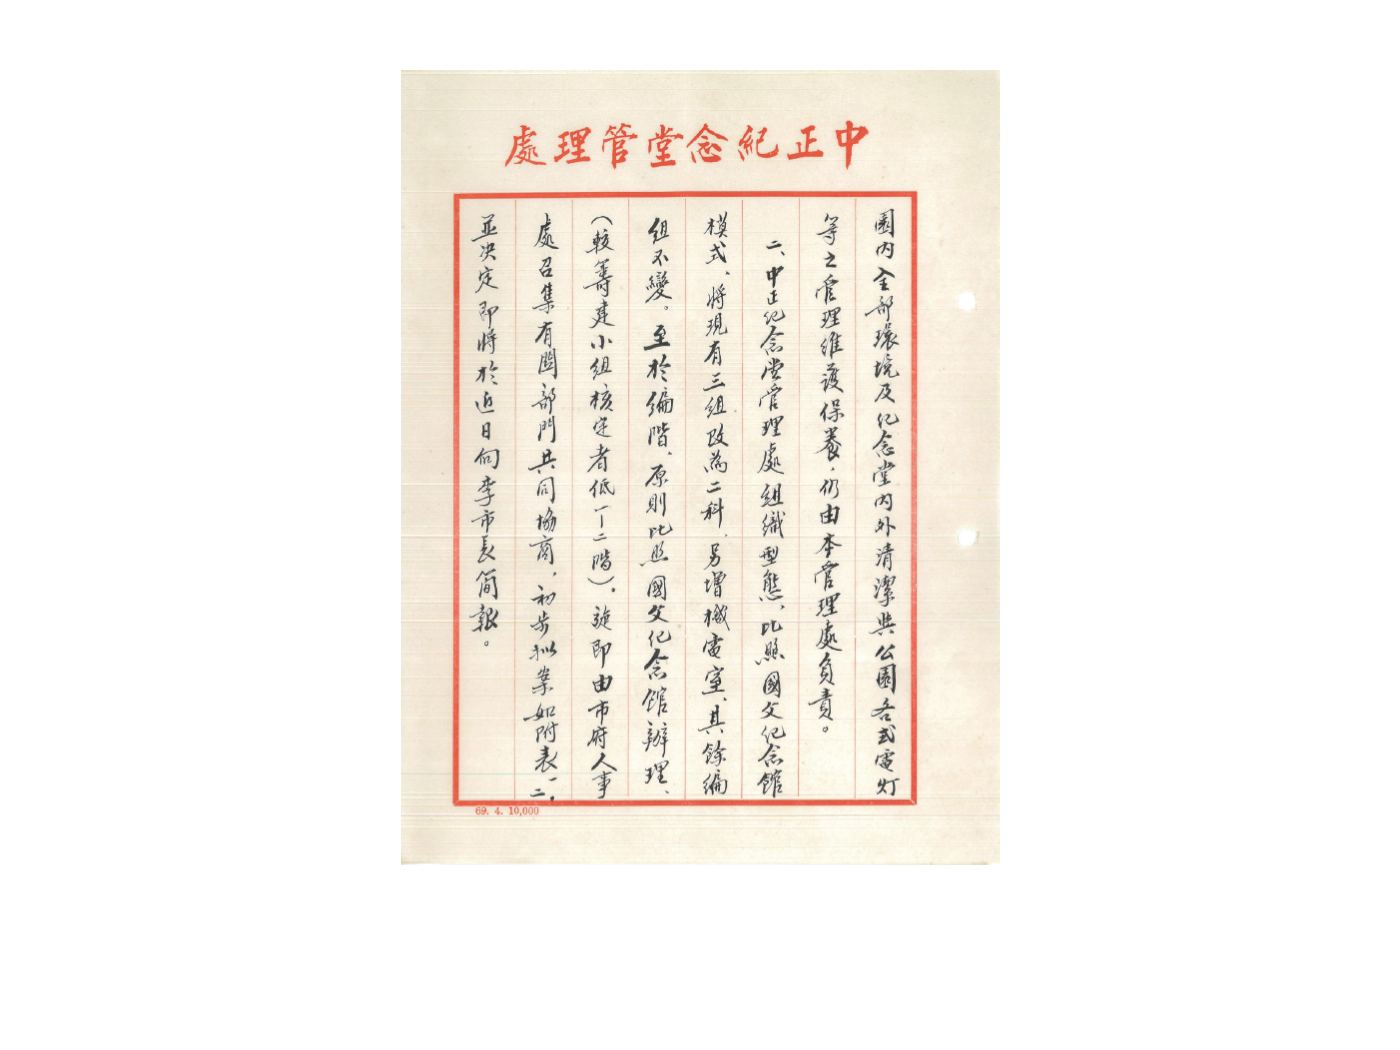 中正紀念堂管理處
園內全部環境及紀念堂內外清潔與公園各式電灯
等之管理維護保養，仍由本管理處負責。
二、中正紀念堂管理處組織型態，比照國父紀念館
模式，將現有三組改為二科，另增機電室，其餘編
組不變。至於編階，原則比照國父紀念館辦理，
（較籌建小組核定者低一丨二階）。旋即由市府人事
處召集有關部門共同協商，初步拟案如附表一、二，
並决定即將於近日向李市長簡報。
69. 4. 10,000